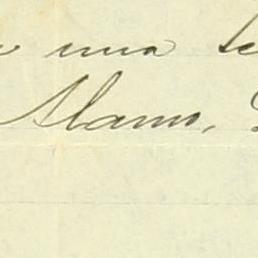 una
Alamo,